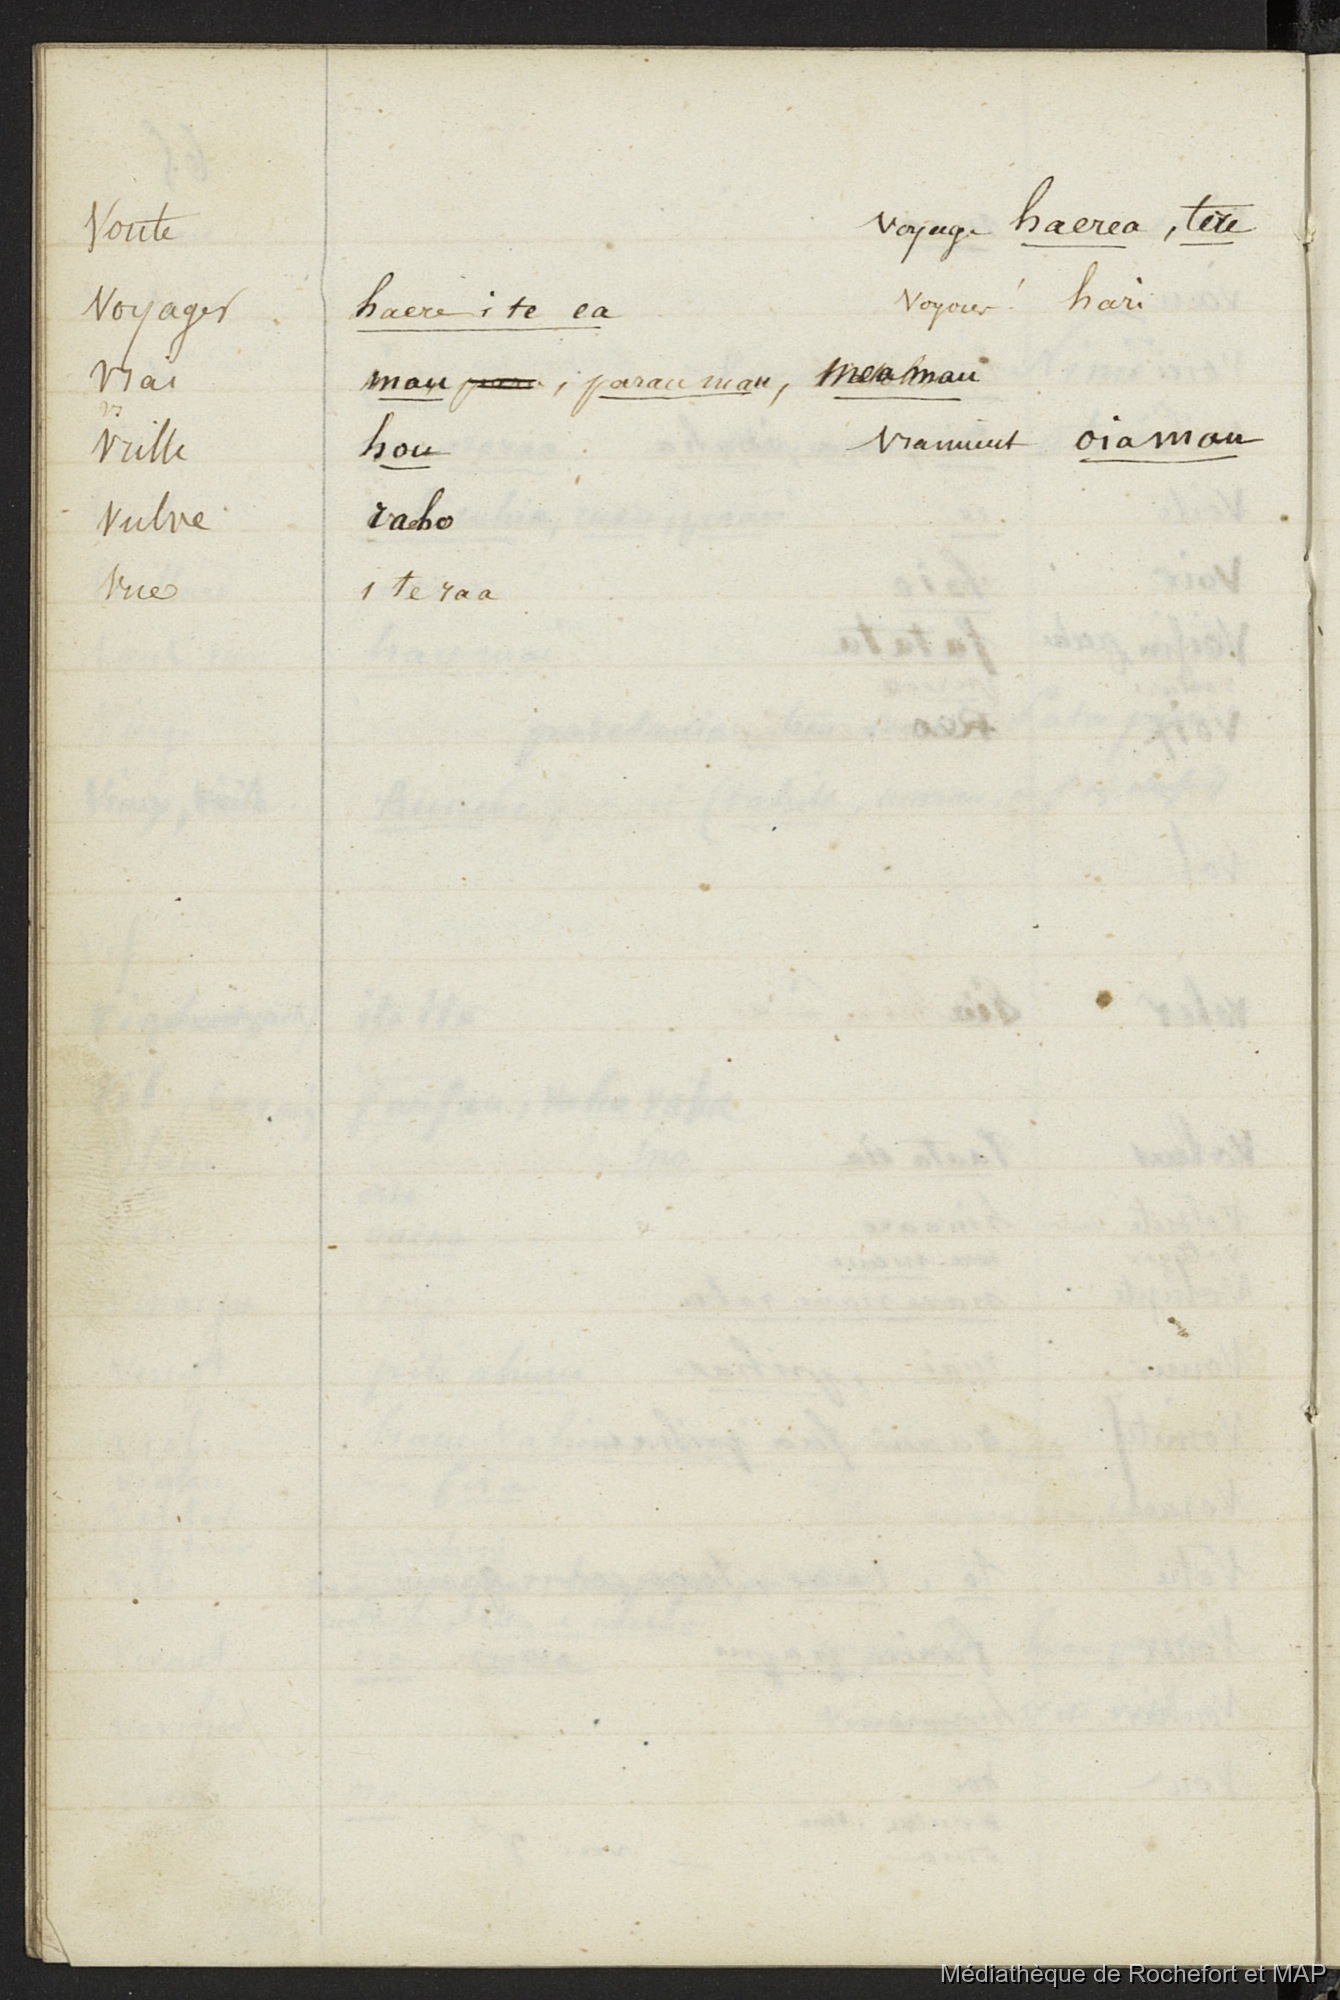 Voute voyage haerea, tere
Voyager haere i te ea Voyons! hari
Vrai mau, parau mau, mea mau
Vrille hou Vraiment oia mau
Vulve raho
Vue i te raa
Médiathèque de Rochefort et MAP